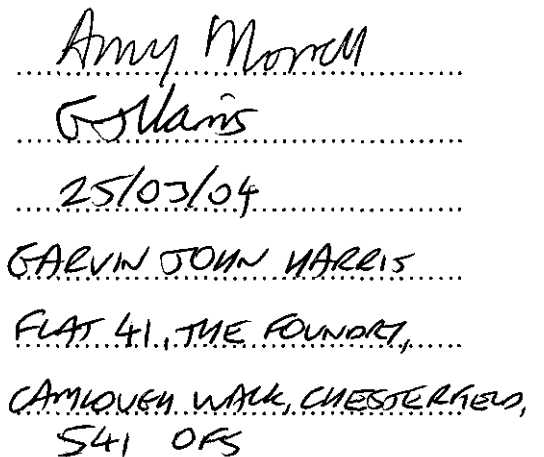 Amy Morrell
GJHarris
25/03/04
GARVIN JOHN HARRIS
FLAT 41, THE FOUNDRY,
CAMLOUGH WALK, CHESTERFIELD,
S41 0FS